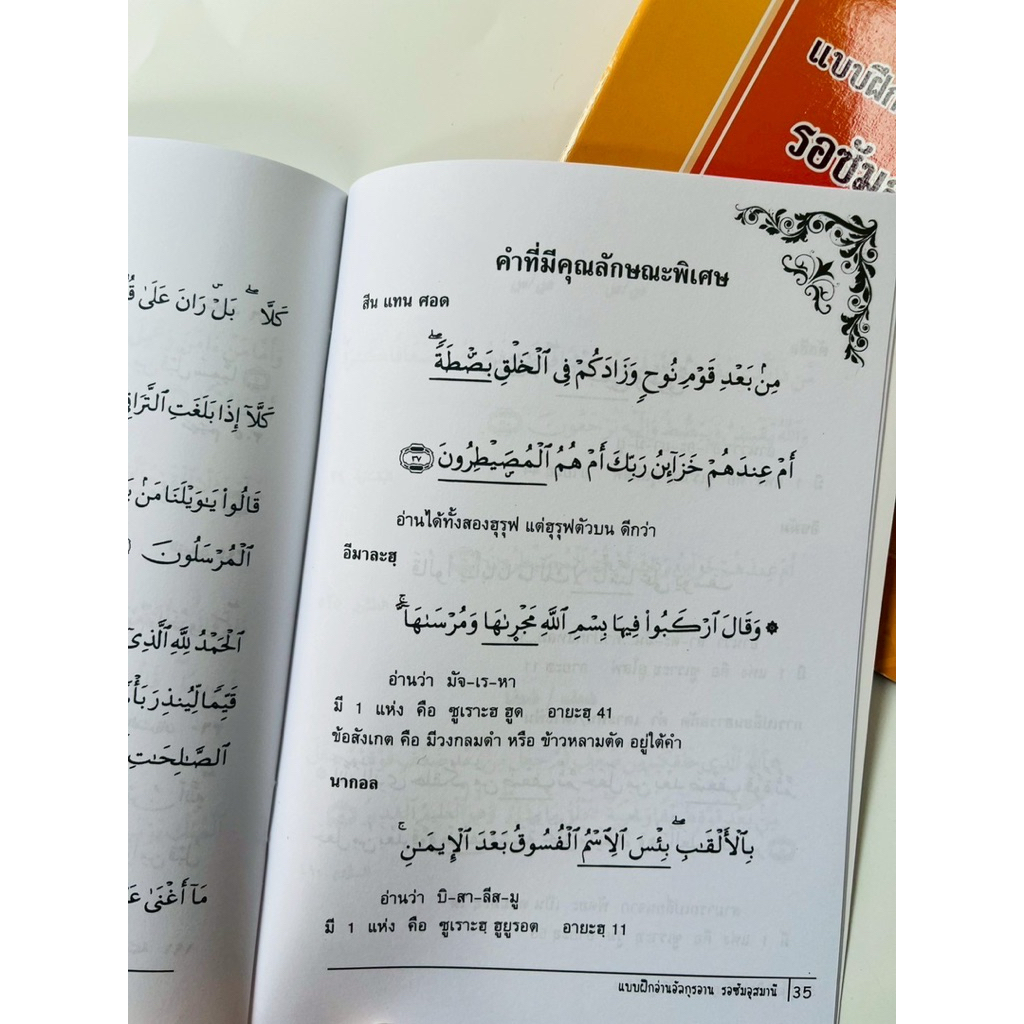 แบบฝึก
รอซัม
كَلَّا ۖ بَلْ ۜ رَانَ عَلَىٰ
كَلَّآ إِذَا بَلَغَتِ ٱلتَّرَاقِ
قَالُوا۟ يَـٰوَيْلَنَا مَنۢ
ٱلْمُرْسَلُونَ
ٱلْحَمْدُ لِلَّهِ ٱلَّذِىٓ
قَيِّمًا لِّيُنذِرَ بَأْ
ٱلصَّـٰلِحَـٰتِ
مَآ أَغْنَىٰ
คำที่มีคุณลักษณะพิเศษ
สีน แทน ศอด
مِنۢ بَعْدِ قَوْمِ نُوحٍ وَزَادَكُمْ فِى ٱلْخَلْقِ بَصْۜطَةً ۖ
أَمْ عِندَهُمْ خَزَآئِنُ رَبِّكَ أَمْ هُمُ ٱلْمُصَۣيْطِرُونَ ٣٧
อ่านได้ทั้งสองฮุรุฟ แต่ฮุรุฟตัวบน ดีกว่า
อีมาละฮฺ
۞ وَقَالَ ٱرْكَبُوا۟ فِيهَا بِسْمِ ٱللَّهِ مَجْر۪ىٰهَا وَمُرْسَىٰهَآ ۚ
อ่านว่า มัจ-เร-หา
มี 1 แห่ง คือ ซูเราะฮ ฮูด อายะฮฺ 41
ข้อสังเกต คือ มีวงกลมดำ หรือ ข้าวหลามตัด อยู่ใต้คำ
นากอล
بِٱلْأَلْقَـٰبِ ۖ بِئْسَ ٱلِٱسْمُ ٱلْفُسُوقُ بَعْدَ ٱلْإِيمَـٰنِ ۚ
อ่านว่า บิ-สา-ลีส-มู
มี 1 แห่ง คือ ซูเราะฮฺ ฮูยูรอต อายะฮฺ 11
แบบฝึกอ่านอัลกุรอาน รอซัมอุสมานี 35